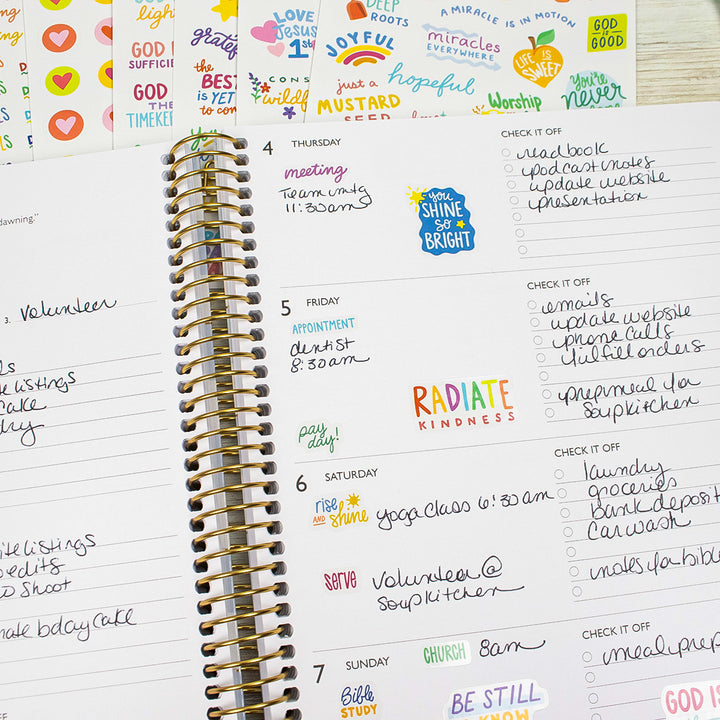 light
GOD IS
SUFFICIE
GOD
THE
TIMEKEE
grateful
the
BEST
IS YET
to com
LOVE
Jesus
1st
CONS
wildf
DEEP
ROOTS
JOYFUL
just a
MUSTARD
SEED
A MIRACLE IS IN MOTION
miracles
EVERYWHERE
hopeful
Worship
LIFE IS
SWEET
GOD
IS
GOOD
You're
never
dawning."
3. volunteer
listings
cake
itelistings
edits
shoot
bday cake
4 THURSDAY
meeting
Team mtg
11:30am
you
SHINE
SO
BRIGHT
CHECK IT OFF
read book
podcast notes
update website
presentation
5 FRIDAY
APPOINTMENT
dentist
8:30am
pay
day!
RADIATE
KINDNESS
CHECK IT OFF
emails
update website
phone calls
fulfill orders
prep meal for
Soup kitchen
6 SATURDAY
rise
AND shine
yoga class 6:30am
SERVE
volunteer @
Soup kitchen
CHECK IT OFF
laundry
groceries
bank deposit
Car wash
notes for bible
7 SUNDAY
CHURCH 8am
Bible
STUDY
BE STILL
KNOW
CHECK IT OFF
meal prep
GOD IS